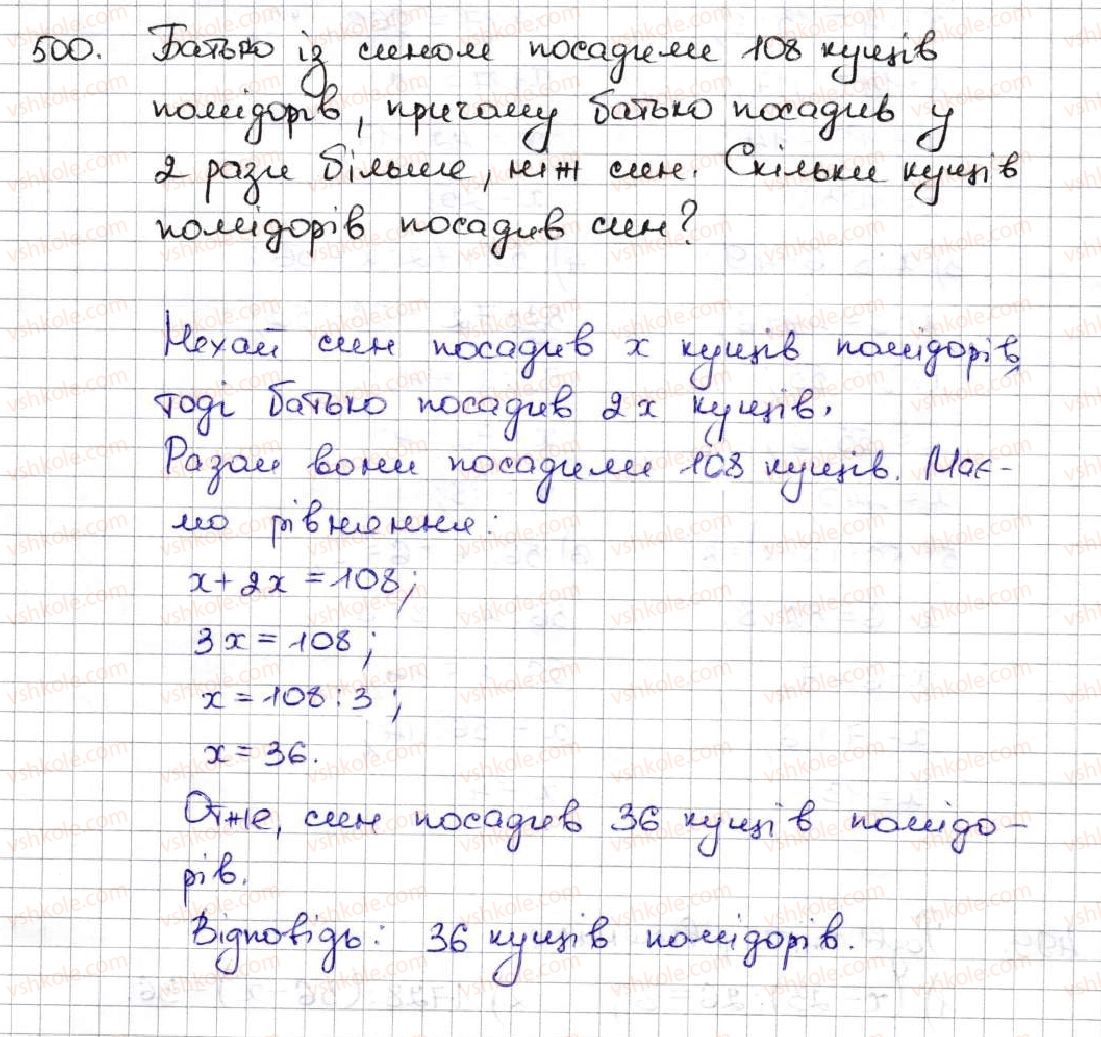 500. Батько із сином посадили 108 кущів
помідорів, причому батько посадив у
2 рази більше, ніж син. Скільки кущів
помідорів посадив син?
Нехай син посадив x кущів помідорів,
тоді батько посадив 2x кущів.
Разом вони посадили 108 кущів. Має-
мо рівняння:
x + 2x = 108;
3x = 108;
x = 108 : 3;
x = 36.
Отже, син посадив 36 кущів помідо-
рів.
Відповідь: 36 кущів помідорів.
vshkole.com